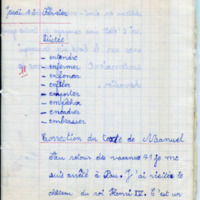 Jeudi 12 Février
Dictée
- entendre
- enfermer
- enfoncer
- enfler
- emporter
- empêcher
- encadrer
- embrasser
Correction du texte de Manuel
Au retour de vacances je me
suis arrêté à Pau. J'ai visité le
château du roi Henri IV. C'est un